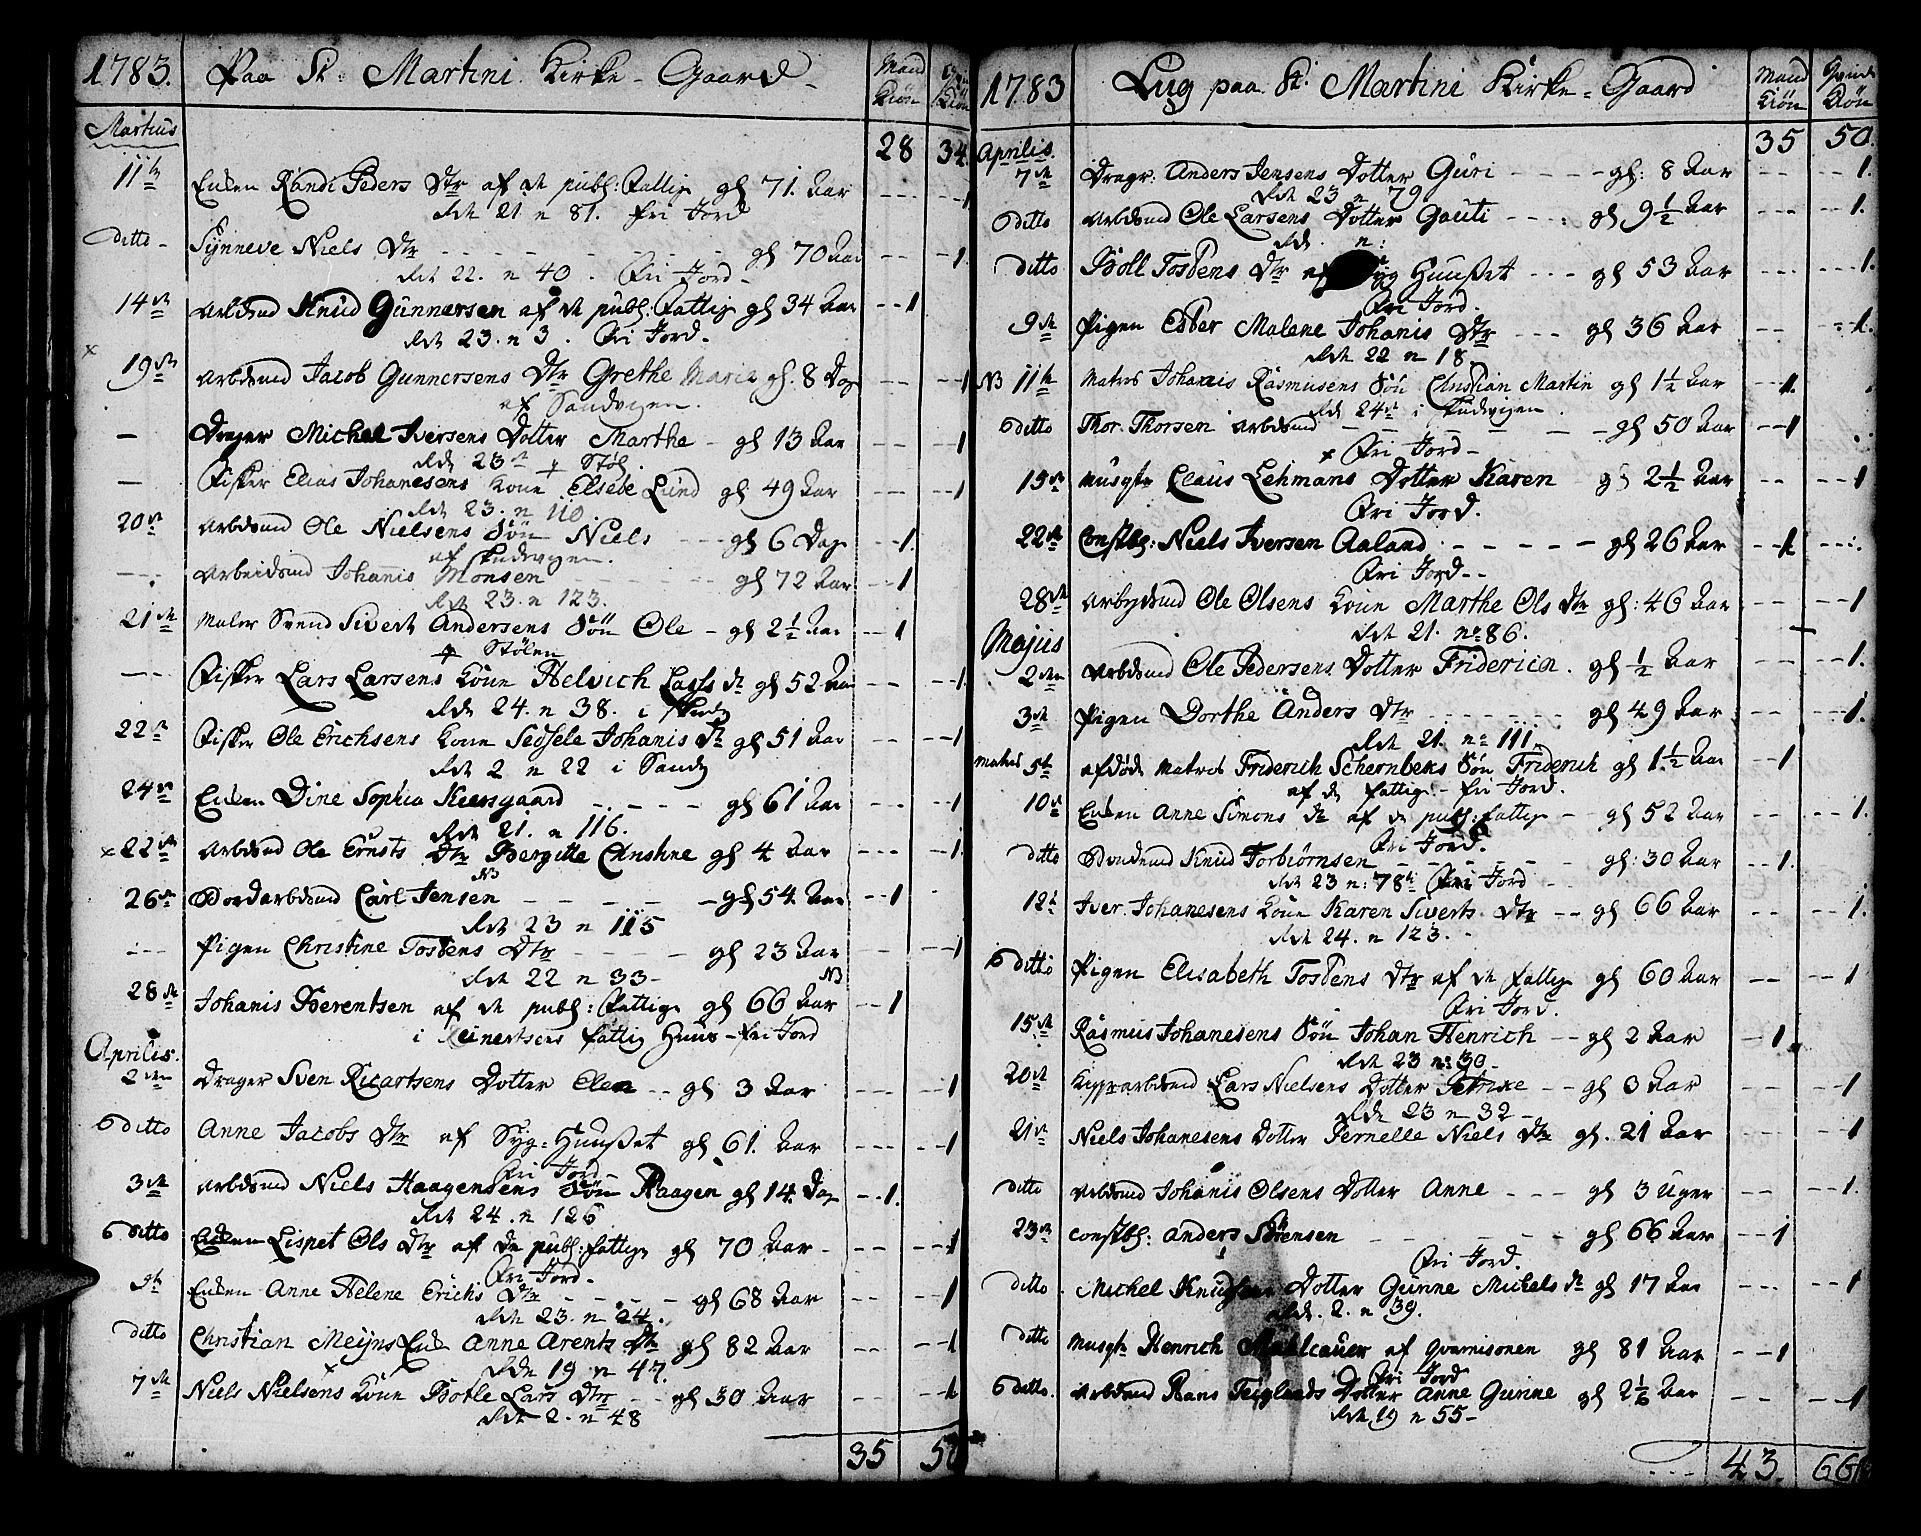 1783. Paa St: Martini Kirke-Gaard - Mand Kiön Kiön
Martius 28 34
11te Enken Randi Peders Dtr af de publ: Fattige gl 71. Aar --- --1
Rde 21 n 81. fri Jord
ditto- Synneve Niels Dtr - - - - - gl 70 Aar -- --1.
Rde 22. n 40. Fri Jord-
14de Arbdsmd Knud Gunnersen af de publ: Fattige gl 34 Aar --1
Rde 23. n 3. Fri Jord-
x 19de Arbdsmd Jacob Gunnersens Dtr Grethe Maria gl. 8 Dage -- --1
af Sandvigen.
— Drager Michel Iversens Dotter Marthe - gl 13 Aar -- --1
Rde 23de Stöl.
— Fisker Elias Johanesens Kone Elsebe Lund gl 49 Aar --- --1
Rde 23. n 110.
20de Arbdsmd Ole Nielsens Sön Niels --- gl 6 Dage --1.
af Skudevigen.
—. Arbeidsmd Johanis Monsen - - - gl 72 Aar --1
Rde 23. n 123.
21de Maler Svend Sivert Andersens Sön Ole - gl 2½ Aar --1
Stölen
--- Fisker Lars Larsens Kone Helvich Lasse dr gl 52 Aar -- --1.
Rde 24. n 38. i Skudv
22de Fisker Ole Erichsens Kone Sedsele Johanis dr gl 51 Aar -- --1
Rde 2 n 22 i Sandv
24de Enken Dine Sophia Keersgaard - - - - gl 61 Aar --- --1
Rde 21. n 116.
x 22de Arbdsmd Ole Ernsts Dtr Bergitte Christine gl 4 Aar --- --1.
NB
26de Bordarbdsmd Carl Jensen - - - - - gl 54 Aar --1
Rde 23 n 115
--- Pigen Christine Tostens Dtr - - - - gl 23 Aar -- --1
Rde 22 n 33- NB
28de Johanis Berentsen af de publ: Fattige gl 66 Aar --1
i Reinertsens fattig Huus - fri Jord
Aprilis.
2den Drager Sven Ricartsens Dotter Elen -- gl 3 Aar --- --1
ditto Anne Jacobs Dtr af Syg:Huuset gl 61. Aar --- --1
Fri Jord-
3de Arbdsmd Niels Haagensens Sön Haagen gl 14 Dage --1.
Rde 24. n 126
ditto Enken Lispet Ols Dtr af de publ: fattige gl 70 Aar- -- --1
Fri Jord-
9de Enken Anne Helene Erichs Dtr - - - - gl 68 Aar -- --1
Rde 23. n 24.
ditto Christian Meijns Enke Anne Arentz Dtr gl 82 Aar --- --1
Rde 19 n 47.
7de Niels Nielsens Kone Botle Lars Dtr -- gl 30 Aar -- --1
Rde 2. n 48
35 50
1783 Lug paa St: Martini Kirke-Gaard Mand Kiön Qvinde Kiön
Aprilis. 35 50.
7de Dragr. Anders Jensens Dotter Guri - - - - gl: 8 Aar --- --1.
Rde 23 n 79
ditto Arbdsmd Ole Larsens Dotter Gauti - - - : gl 9½ Aar --- --1.
Rde . n:
ditto Boll Tostens Dtr af Syg Huuset - - - gl 53 Aar --- --1.
Fri Jord.
9de Pigen Ester Malene Johanis Dtr --- gl 36 Aar -- --1.
Rde 22 n 18
NB 11te Matros Johanis Rasmusens Sön Christian Martin gl 1½ Aar --1.
Rde 24de i Skudvigen.
ditto Thor Thorsen Arbdsmd - - - - - gl 50 Aar --1
x Fri Jord-
15de Musqtr Claus Lehmans Dotter Karen gl 2½ Aar -- --1
Fri Jord.
22de Constbl: Niels Iversen Aaland. - - - - - gl 26 Aar --1
Fri Jord--
28de Arbeydsmd Ole Olsens Kone Marthe Ols Dtr gl: 46 Aar -- --1
Rde 21. no 86.
Majus
2den Arbdsmd Ole Pedersens Dotter Friderica. gl ½ Aar -- --1.
3de Pigen Dorthe Anders Dtr - - - - - gl 49 Aar -- --1.
Rde 21. no 111.
Matros 5te afdöde Matros Friderich Schernbeks Sön Friderich gl 1½ Aar --1
af de fattige - fri Jord.
10de Enken Anne Simons dr af de publ: fattige - gl 52 Aar -- --1.
Fri Jord.
ditto Bondemd Knud Torbiörnsen - - - - - gl: 30 Aar --1.
Rde 23 n: 78 Fri Jord
12te Iver Johanesens Kone Karen Siverts Dtr -- gl 66 Aar -- --1.
Rde 24. n 123. -
ditto Pigen Elisabeth Tostens Dtr af de fattige gl 60 Aar -- --1
Fri Jord.
15de Rasmus Johanesens Sön Johan Henrich -- gl 2 Aar --1.
Rde 23 no 30
20de Kipparbdsmd Lars Nielsens Dotter Petrine -- gl 3 Aar -- --1
Rde 23 n 32-
21de Niels Johanesens Dotter Pernelle Niels Dtr gl. 21 Aar --- --1
ditto Arbdsmd Johanis Olsens Dotter Anne - - - gl 3 Uger -- --1.
23de Constbl: Anders Sörensen - - - - gl 66 Aar --1
Fri Jord.
ditto. Michel Knudsens Dotter Gunne Michels dr gl 17 Aar --- --1
Rde. 2. n 39.
ditto Musqtr Henrich af Guarnisonen gl 81 Aar --1
Fri Jord
ditto. Arbdsmd Hans Teiglands Dotter Anne Gunne gl 2½ Aar -- --1
Rde 19 n 55-
43. 66